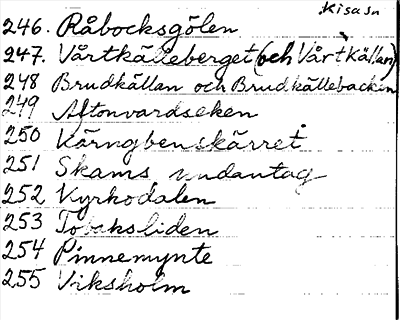 Kisasn
246. Råbocksgölen
247. Vårtkälleberget (och Vårtkällan)
248 Brudkällan och Brudkällebacken
249 Aftonvardseken
250 Kärngbenskärret
251 Skams undantag
252 Kyrkodalen
253 Tobaksliden
254 Pinnemynte
255 Viksholm